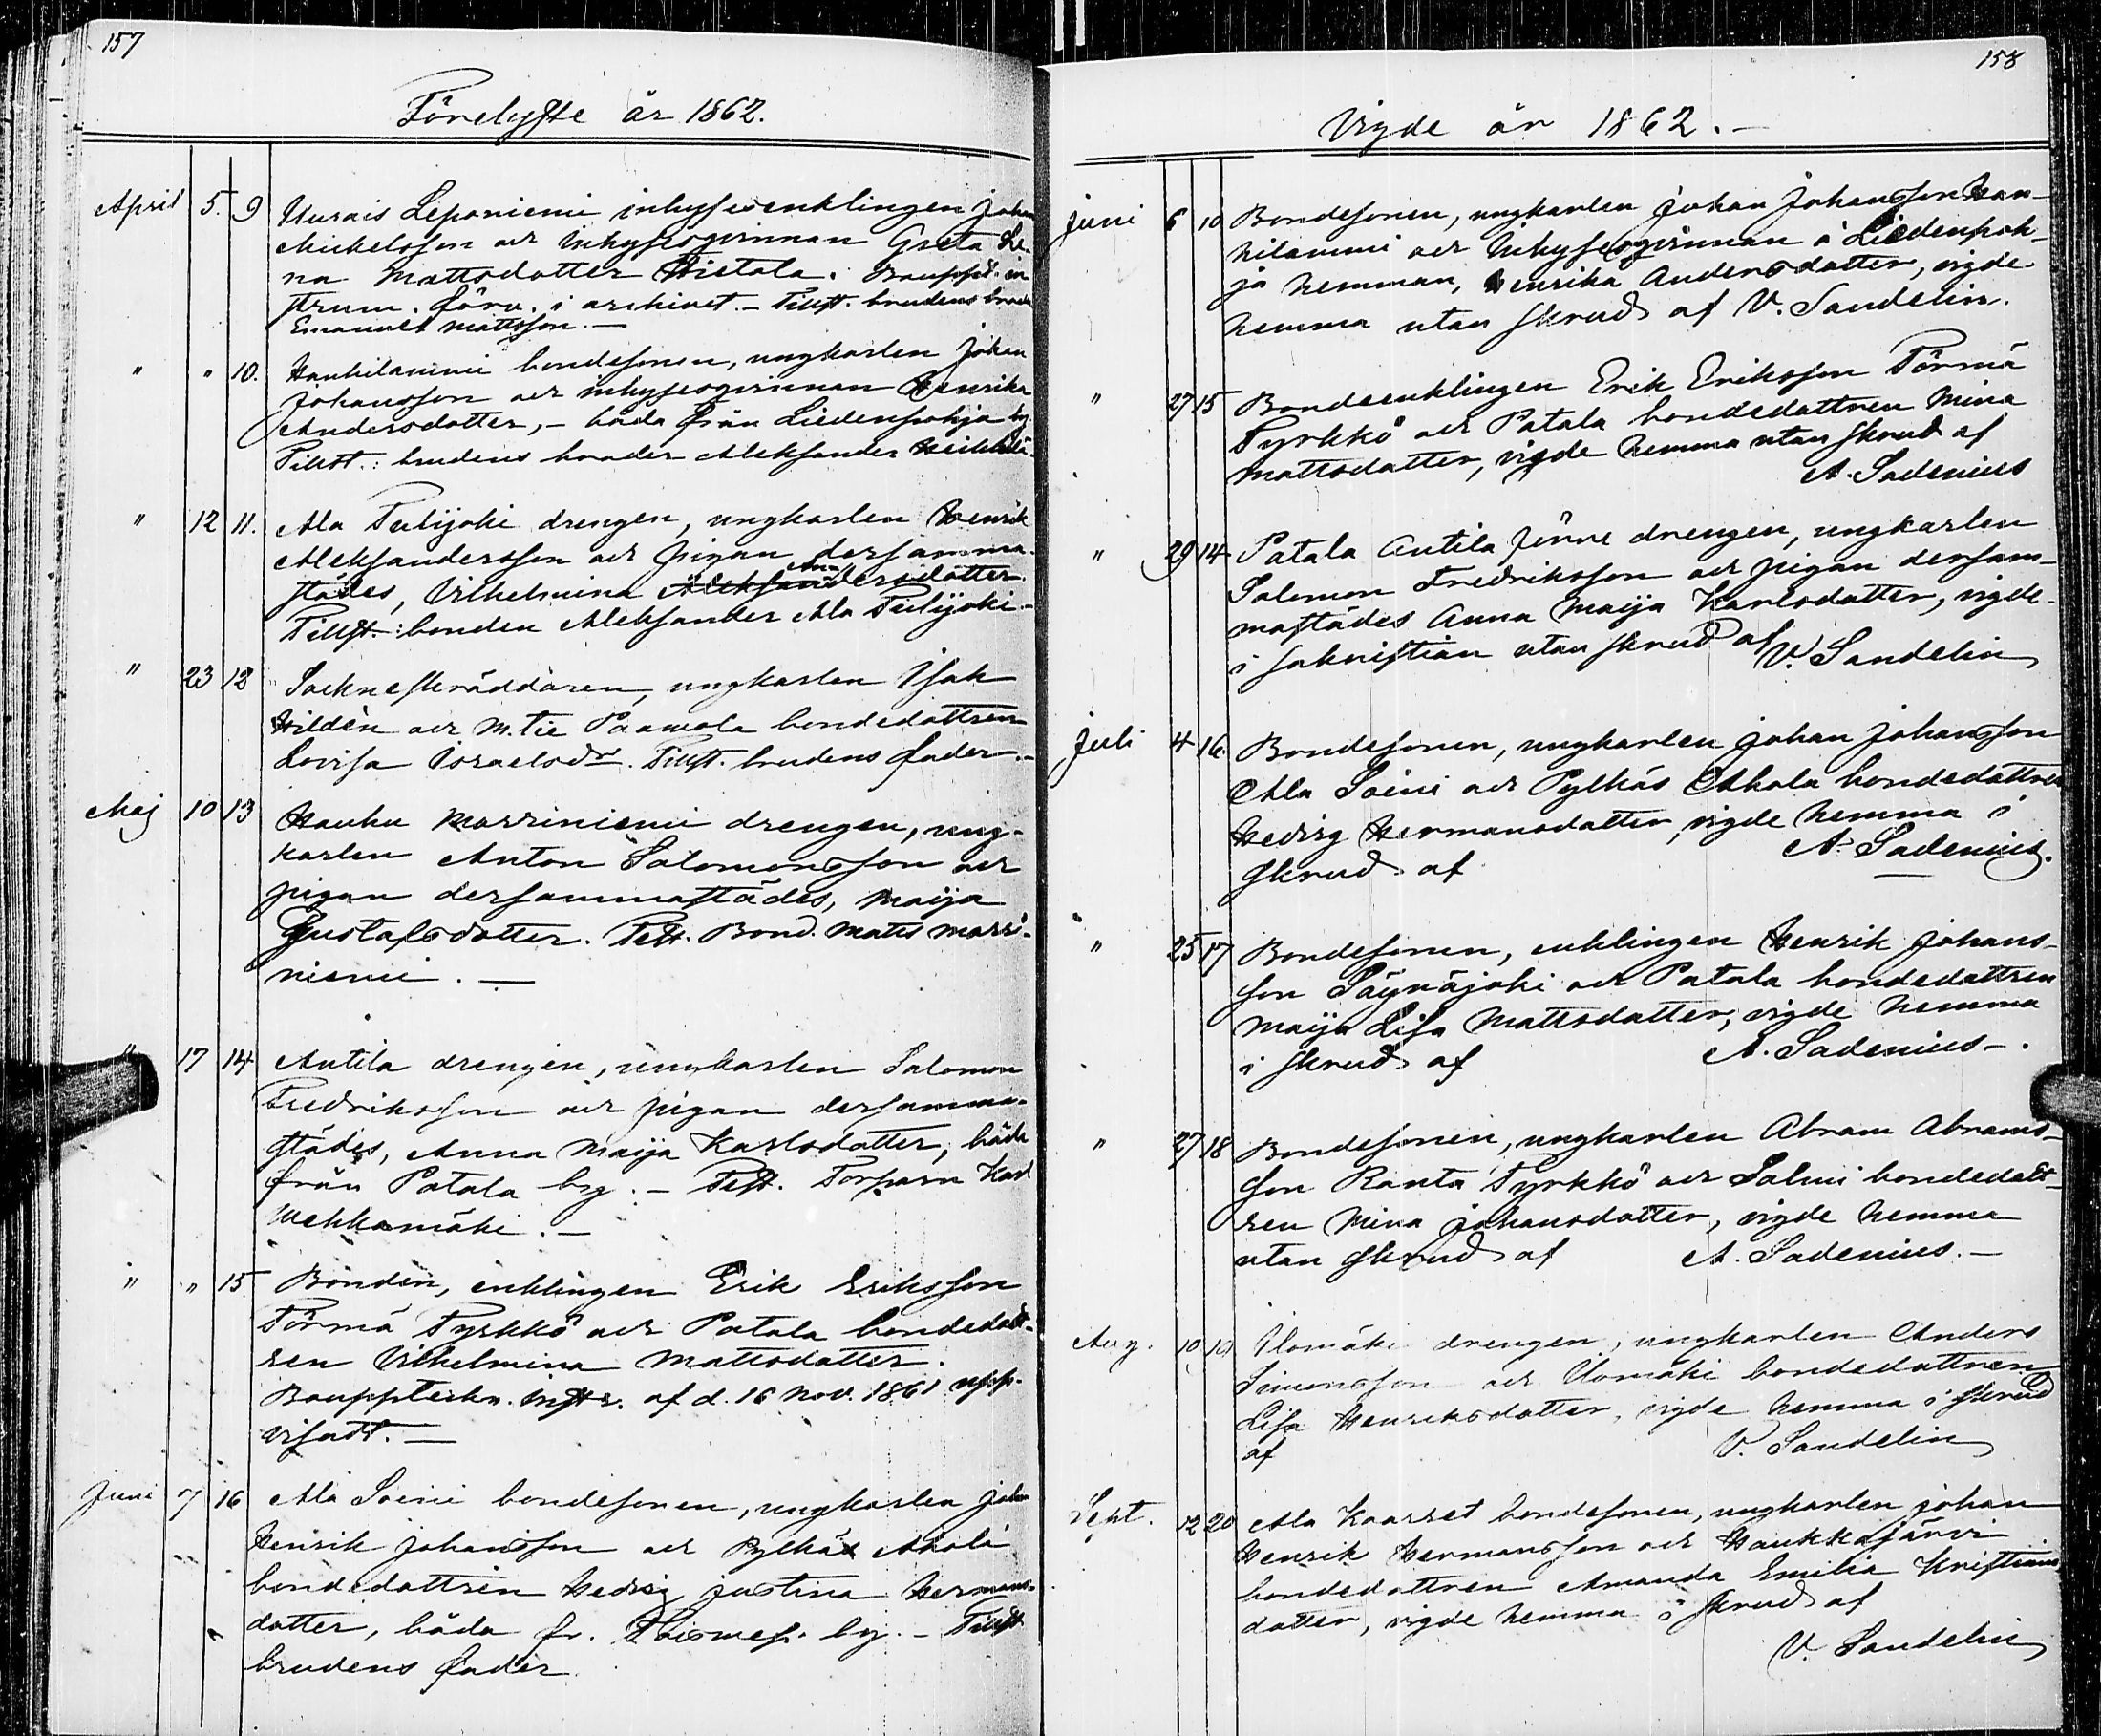 157
Förelyste år 1862.
April 5. 9 Uurais Leponiemi inhysesenklingen Johan
Mickelsson och inhysesqvinnan Greta Le-
na Mattsdotter Hietala. Boupptd. in
strum. förv. i archivet. – Tillst. brudens broder
Emanuel Mattsson. –
" " 10. Hankilammi bondesonen, ungkarlen Johan
Johansson och inhysesqvinnan Henrika
Andersdotter, – båda från Liedenpohja by
Tillst.: brudens broder Aleksander
" 12 11. Ala Tulijoki drengen, ungkarlen Henrik
Aleksandersson och pigan dersamma-
städes, Vilhelmina Aleksandersdotter
Tillst.: bonden Aleksander Ala Tulijoki –
" 23 12 Sockneskräddaren, ungkarlen Isak
Hildén och M.tie Paavola bondedottren
Lovisa Israelsdr. Tillst. brudens fader. –
Maj 10 13 Hauhu Marriniemi drengen, ung-
karlen Anton Salomonsson och
pigan dersammastädes, Maija
Gustafsdotter. Tillst. Bond. Matts Marri-
niemi. –
" 17 14 Antila drengen, ungkarlen Salomon
Fredriksson och pigan dersamma-
städes, Anna Maija Karlsdotter, båda
från Patala by. – Tillst. Torparn Karl
Wehkamäki. –
" " 15 Bonden, enklingen Erik Eriksson
Törmä Tyrkkö och Patala bondedott-
ren Vilhelmina Mattsdotter.
Bouppteckn. instr. af d. 16 Nov. 1861 upp-
visadt. –
Juni 7 16 Ala Soini bondesonen, ungkarlen Joh.
Henrik Johansson och Pylkäs Ahola
bondedottren Hedvig Justina Hermans-
dotter, båda fr. by. – Tillst
brudens fader.
158
Vigde år 1862. –
Juni 6 10 Bondesonen, ungkarlen Johan Johansson Han-
kilammi och Inhysesqvinnan å Liedenpoh-
ja hemman, Henrika Andersdotter, vigde
hemma utan skrud af V. Sandelin.
" 27 15 Bondeenklingen Erik Eriksson Törmä
Tyrkkö och Patala bondedottren Mina
Mattsdotter, vigde hemma utan skrud af
A. Sadenius
" 29 14 Patala Antila förre drengen, ungkarlen
Salomon Fredriksson och pigan dersam-
mastädes Anna Maija Karlsdotter, vigde
i sakristian utan skrud af
V. Sandelin
Juli 4 16. Bondesonen, ungkarlen Johan Johansson
Ala Soini och Pylkäs Ahola bondedottren
Hedvig Hermansdotter, vigde hemma i
skrud af A. Sadenius.
" 25 17 Bondesonen, enklingen Henrik Johans-
son Säynäjoki och Patala bondedottren
Maija Lisa Mattsdotter, vigde hemma
i skrud af A. Sadenius –.
" 27 18 Bondesonen, ungkarlen Abram Abrams-
son Ranta Tyrkkö och Salmi bondedott-
ren Mina Johansdotter, vigde hemma
utan skrud af A. Sadenius. –
Aug. 10 19 Ulomäki drengen, ungkarlen Anders
Simonsson och Ulomäki bondedottren
Lisa Henriksdotter, vigde hemma i skrud
af V. Sandelin
Sept. 12 20 Ala Kaarret bondesonen, ungkarlen Johan
Henrik Hermansson och Haukkajärvi
bondedottren Amanda Emilia Kristians
dotter, vigde hemma i skrud af
V. Sandelin